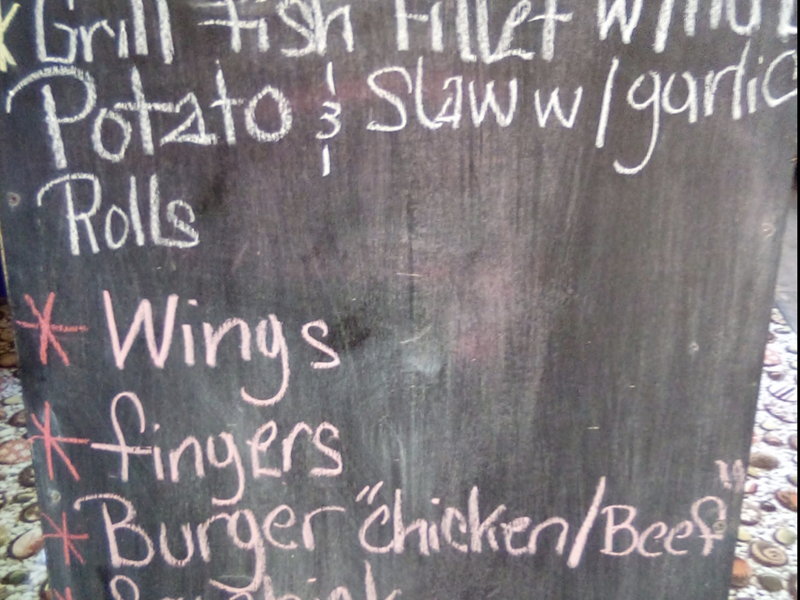 Grill Fish Fillet w/
Potato & Slaw w/garlic
Rolls
* Wings
* fingers
* Burger "chicken/Beef"